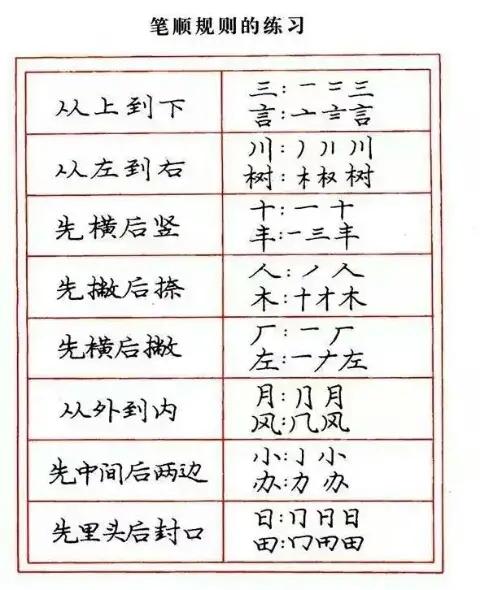 笔顺规则的练习
从上到下
三:一二三
言:亠言言
从左到右
川:丿刂川
树:木权树
先横后竖
十:一十
丰:一三丰
先撇后捺
人:丿人
木:十才木
先横后撇
厂:一厂
左:一𠂇左
从外到内
月:⺆月月
风:几风
先中间后两边
小:亅小
办:力办
先里头后封口
日:冂日日
田:冂田田